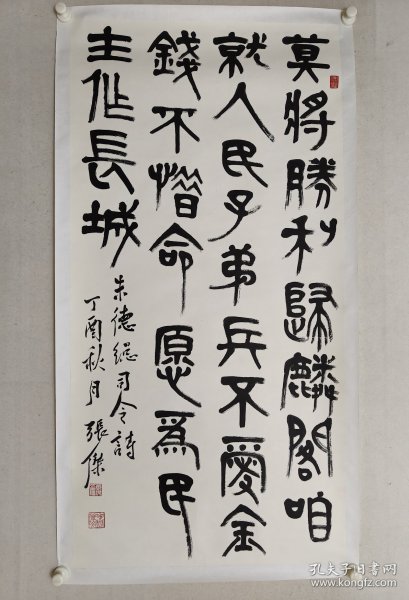 莫將勝利歸麟閣咱
就人民子弟兵不愛金
錢不惜命愿為民
主作長城
朱德總司令詩
丁酉秋月張傑
孔夫子旧书网
www.kongfz.com